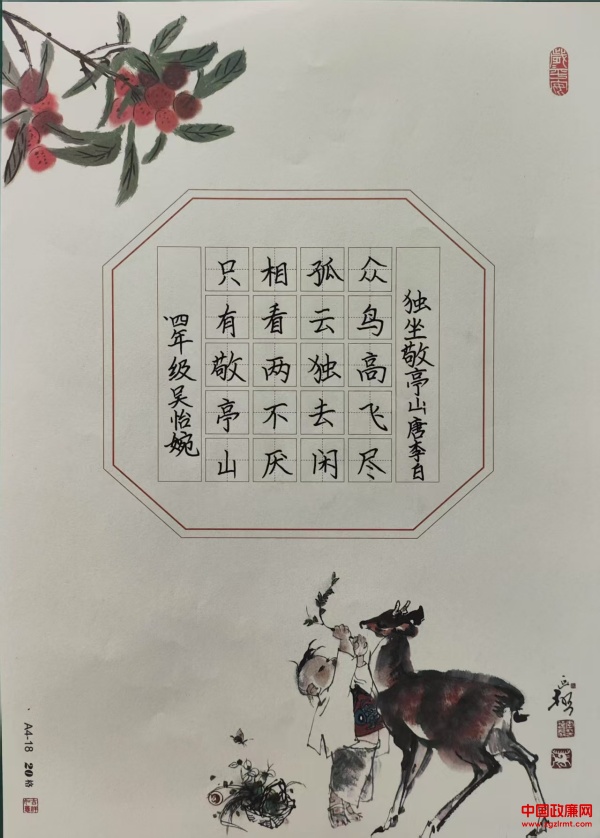 独坐敬亭山唐李白
众鸟高飞尽
孤云独去闲
相看两不厌
只有敬亭山
四年级吴怡婉
A4-18 20格
中国政廉网